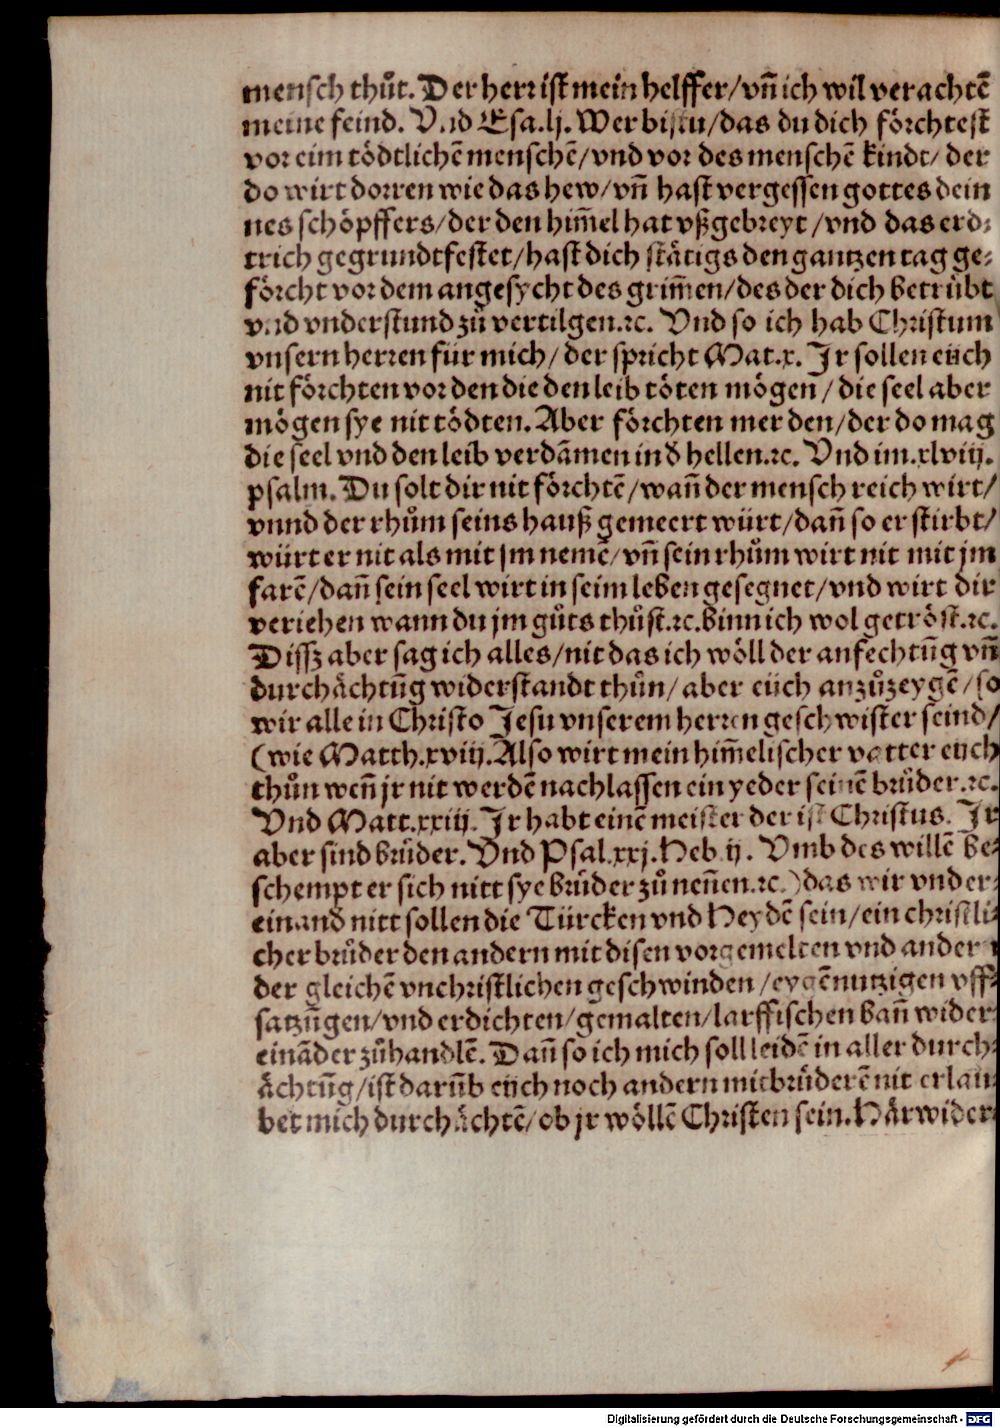 mensch thůt. Der herr ist mein helffer/vñ ich wil verachtẽ
meine feind. Vnd Esa.lj. Wer bistu/das du dich förchtest
vor eim tödtlichẽ menschẽ/vnd vor des menschẽ kindt/ der
do wirt dorren wie das hew/vñ hast vergessen gottes dein
nes schöpffers/der den him̃el hat vßgebreyt/vnd das erd⸗
trich gegrundtfestet/hast dich stätigs den gantzen tag ge⸗
förcht vor dem angesycht des grim̃en/des der dich betrübt
vnd vnderstund zů vertilgen.ꝛc. Vnd so ich hab Christum
vnsern herren für mich/ der spricht Mat.x. Jr sollen eüch
nit förchten vor den die den leib töten mögen/ die seel aber
mögen sye nit tödten. Aber förchten mer den/der do mag
die seel vnd den leib verdãmen in d̕ hellen.ꝛc. Vnd im.xlviij.
psalm. Du solt dir nit förchtẽ/wañ der mensch reich wirt/
vnnd der rhům seins hauß gemeert würt/dañ so er stirbt/
würt er nit als mit jm nemẽ/vñ sein rhům wirt nit mit jm
farẽ/dañ sein seel wirt in seim leben gesegnet/vnd wirt dir
veriehen wann du jm gůts thůst.ꝛc.binn ich wol getröst.ꝛc.
Dissz aber sag ich alles/nit das ich wöll der anfechtũg vñ
durchächtũg widerstandt thůn/ aber eüch anzůzeygẽ/so
wir alle in Christo Jesu vnserem herren geschwister seind/
(wie Matth.xviij. Also wirt mein him̃elischer vatter eüch
thůn weñ jr nit werdẽ nachlassen ein yeder seinẽ brůder.ꝛc.
Vnd Matt.xxiij. Jr habt einẽ meister der ist Christus. Jr
aber sind brüder. Vnd Psal.xxj. Heb.ij. Vmb des willẽ be⸗
schempt er sich nitt sye brüder zů neñen.ꝛc.) das wir vnder⸗
einand̕ nitt sollen die Türcken vnd Heydẽ sein/ein christli⸗
cher brůder den andern mit disen vorgemelten vnd ander
der gleichẽ vnchristlichen geschwinden/eygẽnutzigen vff⸗
satzũgen/vnd erdichten/gemalten/larffischen bañ wider⸗
einãder zůhandlẽ. Dañ so ich mich soll leidẽ in aller durch⸗
ächtũg/ist darũb eüch noch andern mitbrüderẽ nit erlau⸗
bet mich durchächtẽ/ob jr wöllẽ Christen sein. Härwider⸗
Digitalisierung gefördert durch die Deutsche Forschungsgemeinschaft - DFG